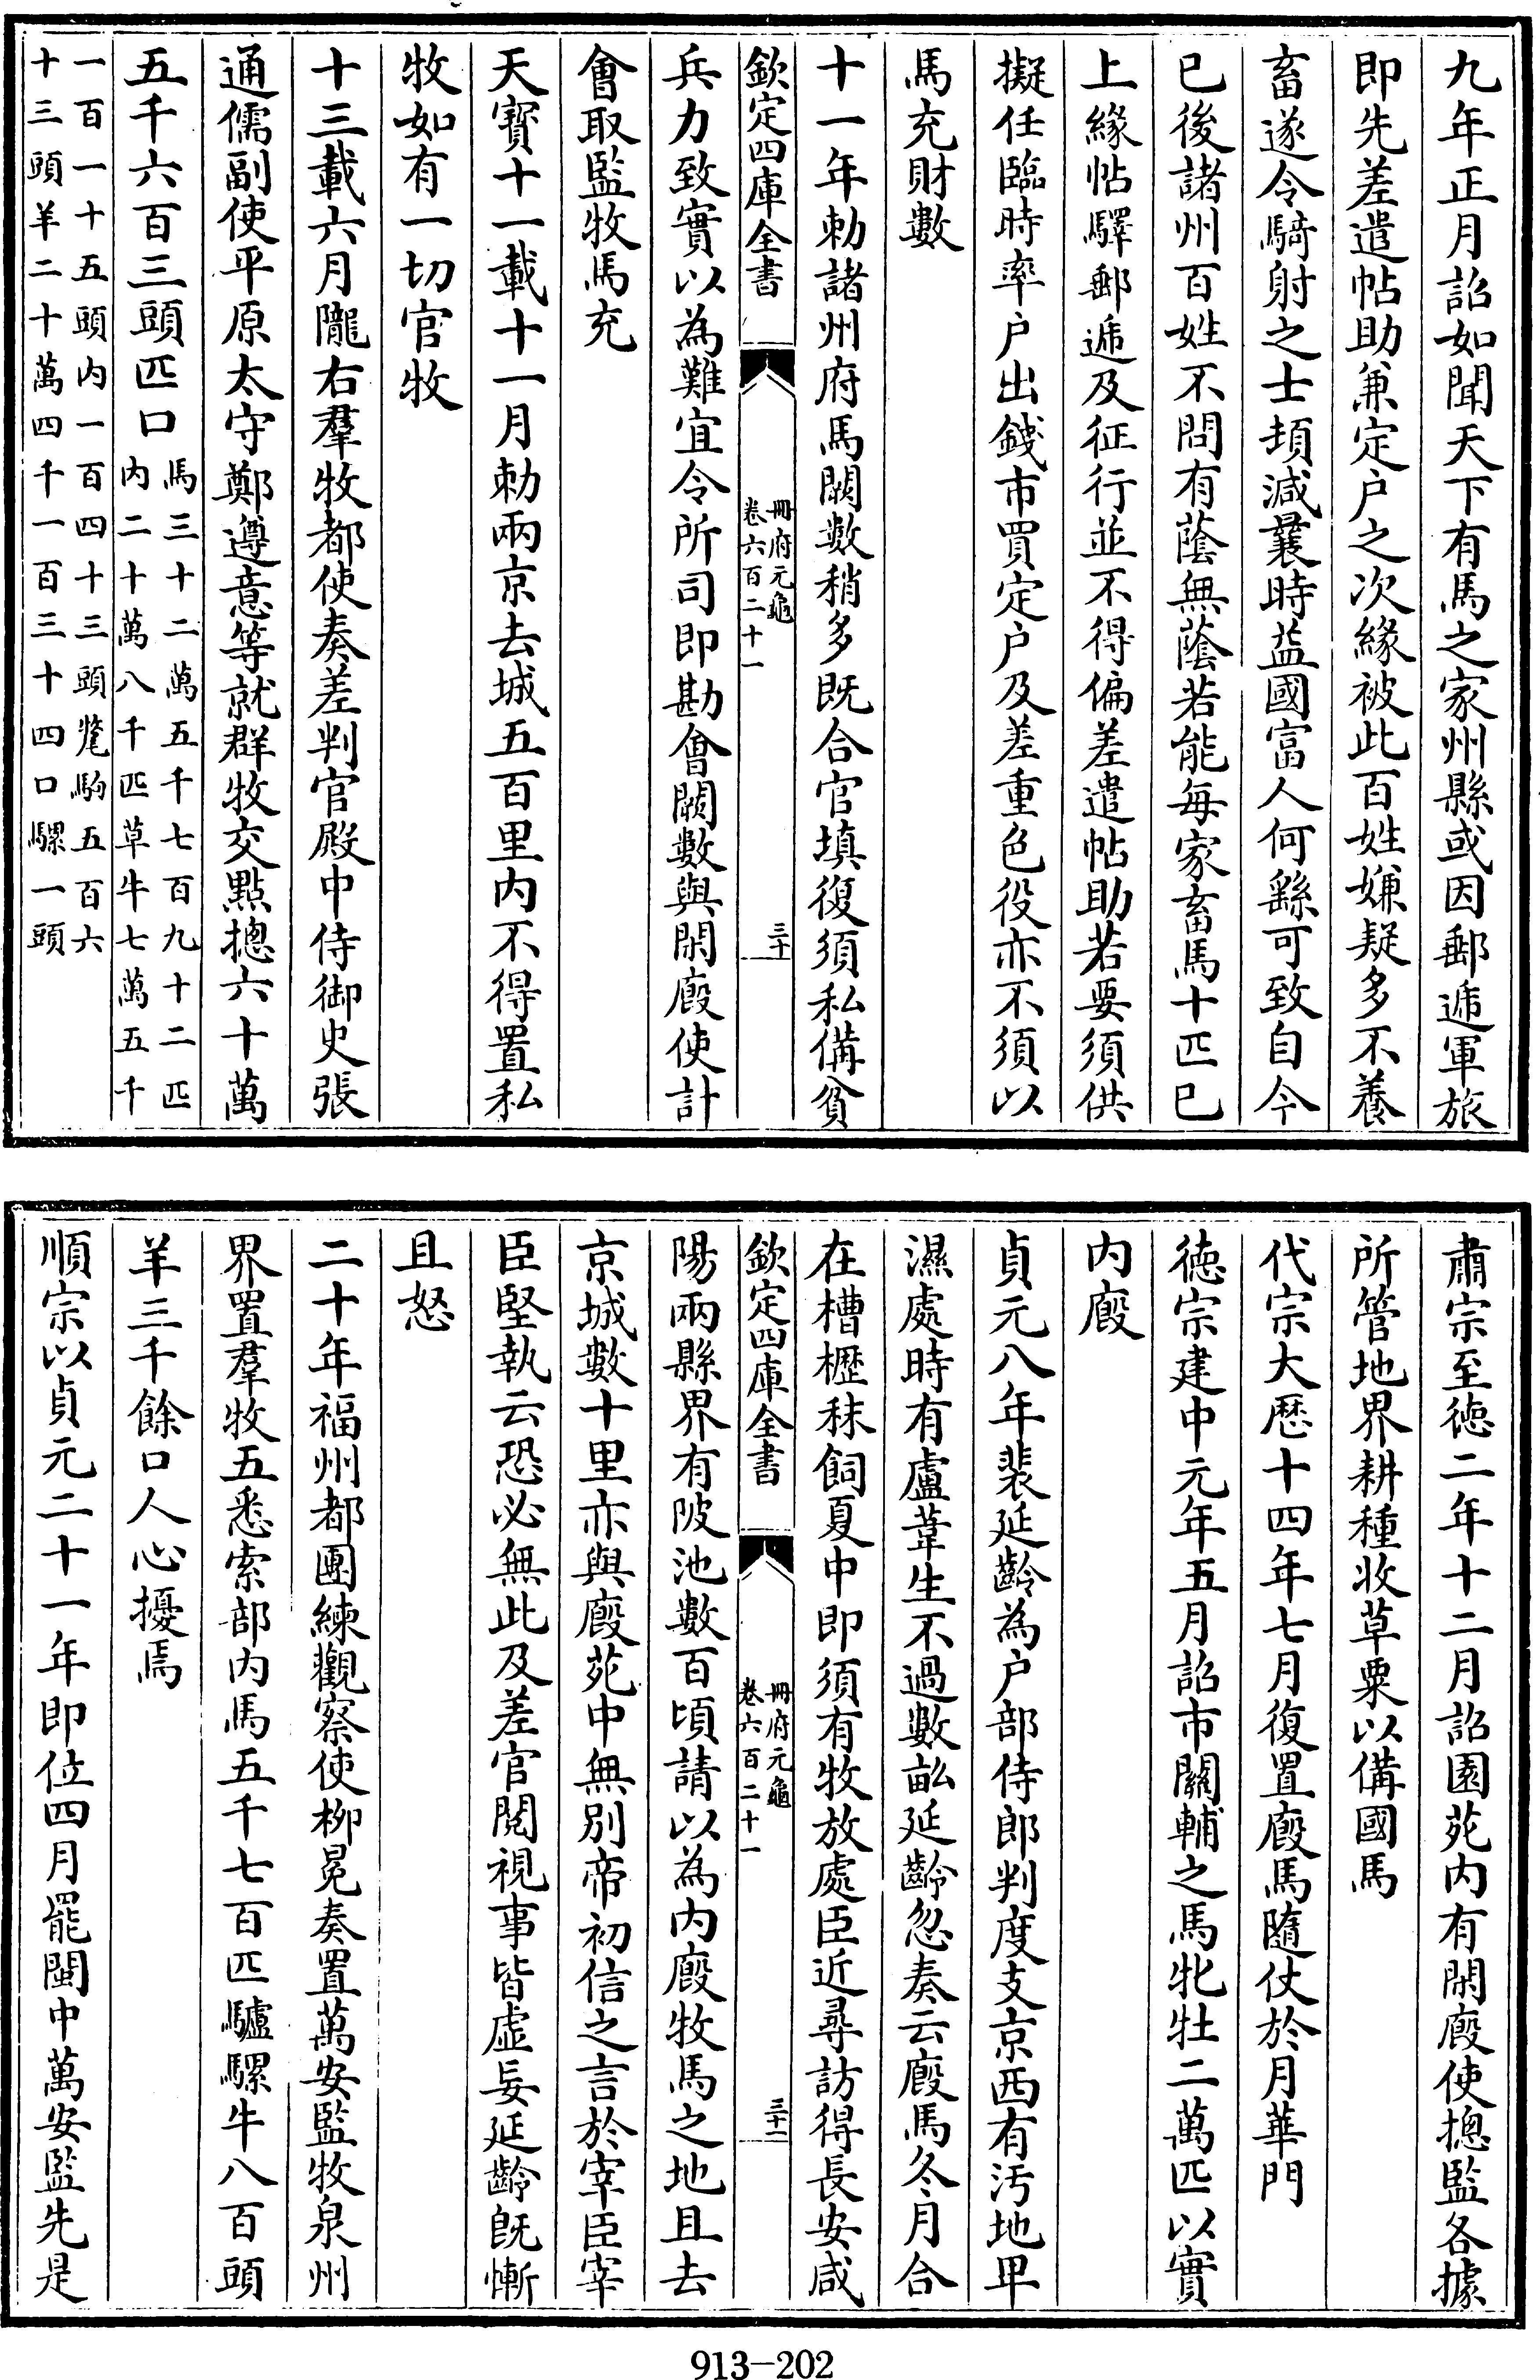 九年正月詔如聞天下有馬之家州縣或因郵遞軍旅
即先差遣帖助兼定户之次緣被此百姓嫌疑多不養
畜遂令騎射之士頓減曩時益國富人何繇可致自今
已後諸州百姓不問有蔭無蔭若能每家畜馬十匹已
上緣帖驛郵遞及征行並不得偏差遣帖助若要須供
擬任臨時率户出錢市買定户及差重色役亦不須以
馬充財數
十一年勅諸州府馬闕數稍多既合官填復須私備貧
欽定四庫全書
冊府元龜
卷六百二十一
三十
兵力致實以為難宜令所司即勘會闕數與閑廐使計
會取監牧馬充
天寳十一載十一月勅兩京去城五百里内不得置私
牧如有一切官牧
十三載六月隴右羣牧都使奏差判官殿中侍御史張
通儒副使平原太守鄭遵意等就群牧交點揔六十萬
五千六百三頭匹口
馬三十二萬五千七百九十二匹
内二十萬八千匹草牛七萬五千
一百一十五頭内一百四十三頭㲠駒五百六
十三頭羊二十萬四千一百三十四口騾一頭
肅宗至徳二年十二月詔園苑内有閑廐使揔監各據
所管地界耕種收草粟以備國馬
代宗大厯十四年七月復置廐馬隨仗於月華門
徳宗建中元年五月詔市關輔之馬牝牡二萬匹以實
内廐
貞元八年裴延齡為户部侍郎判度支京西有汚地卑
濕處時有蘆葦生不過數畝延齡忽奏云廐馬冬月合
在槽櫪秣飼夏中即須有牧放處臣近尋訪得長安咸
欽定四庫全書
冊府元龜
卷六百二十一
三十一
陽兩縣界有陂池數百頃請以為内廐牧馬之地且去
京城數十里亦與廐苑中無别帝初信之言於宰臣宰
臣堅執云恐必無此及差官閲視事皆虚妄延齡既慚
且怒
二十年福州都團練觀察使柳冕奏置萬安監牧泉州
界置羣牧五悉索部内馬五千七百匹驢騾牛八百頭
羊三千餘口人心擾焉
順宗以貞元二十一年即位四月罷閩中萬安監先是
913-202